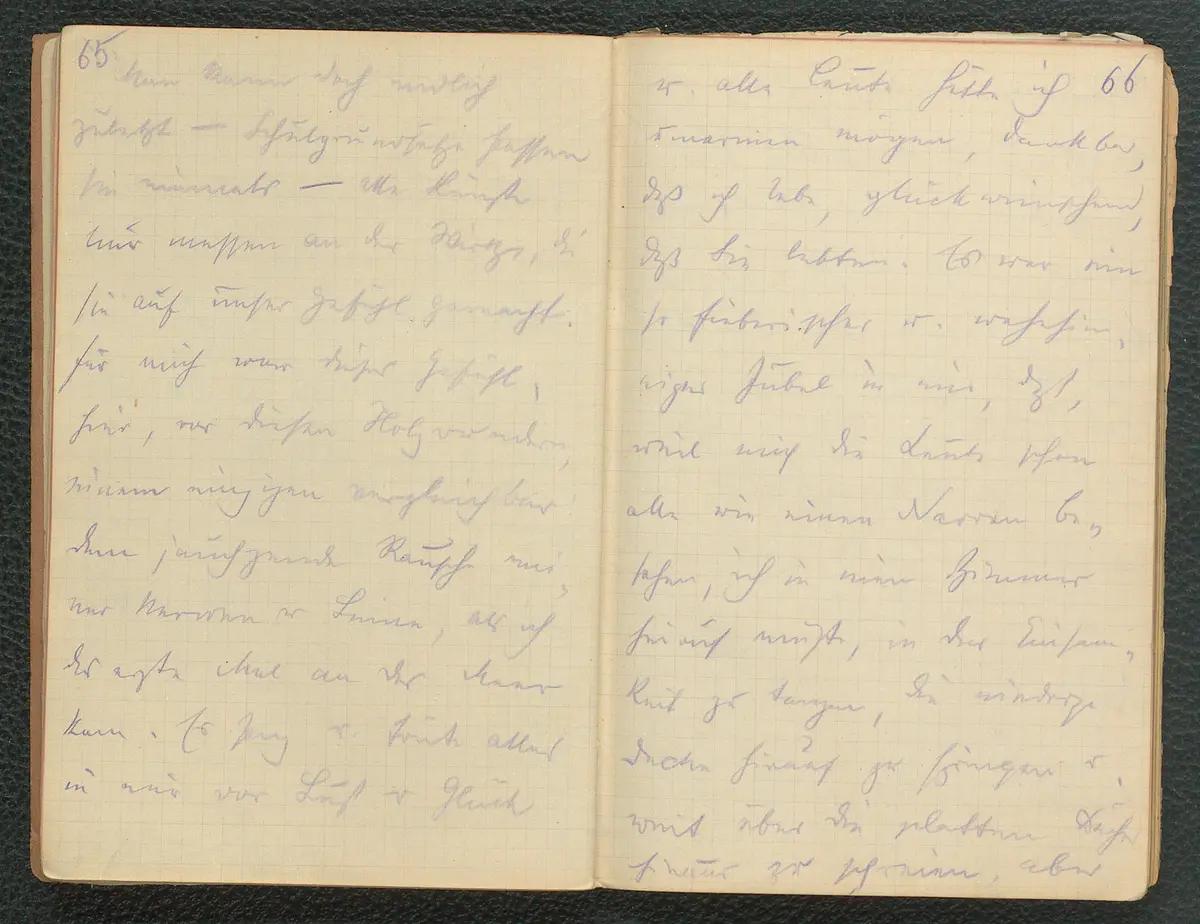 65
Man kann doch endlich
zuletzt — Schulgrundsätze passen
hin niemals — alle Künste
nur messen an der Wirkg, die
sie auf unser Gefühl gemacht.
Für mich war dieses Gefühl,
hier, vor diesen Holzwundern,
einem einzigen vergleichbar:
dem jauchzende Rausche mei-
ner Nerven u Sinne, als ich
das erste Mal an das Meer
kam. Es sang u. tönte alles
in mir vor Lust u Glück
66
u. alle Leute hätte ich
umarmen mögen, dankbar,
daß ich lebe, glückwünschend,
daß Sie lebten. Es war ein
so fieberischer u. wahnsin-
niger Jubel in mir, daß,
weil mich die Leute schon
alle wie einen Narren be-
sahen, ich in mein Zimmer
hinauf mußte, in der Einsam-
keit zu tanzen, die niedere
Decke hinauf zu springen u.
weit über die platten Dächer
hinaus zu schreien, aber